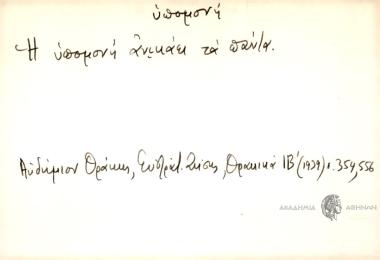 ὑπομονή
Ἡ ὑπομονή ἀνικάει τά πάντα.
Αὐδήμιον Θράκης, Εὐστράτ. Ζήση, Θρακικά ΙΒ' (1939) σ. 354, 556
ΑΚΑΔΗΜΙΑ ΑΘΗΝΩΝ